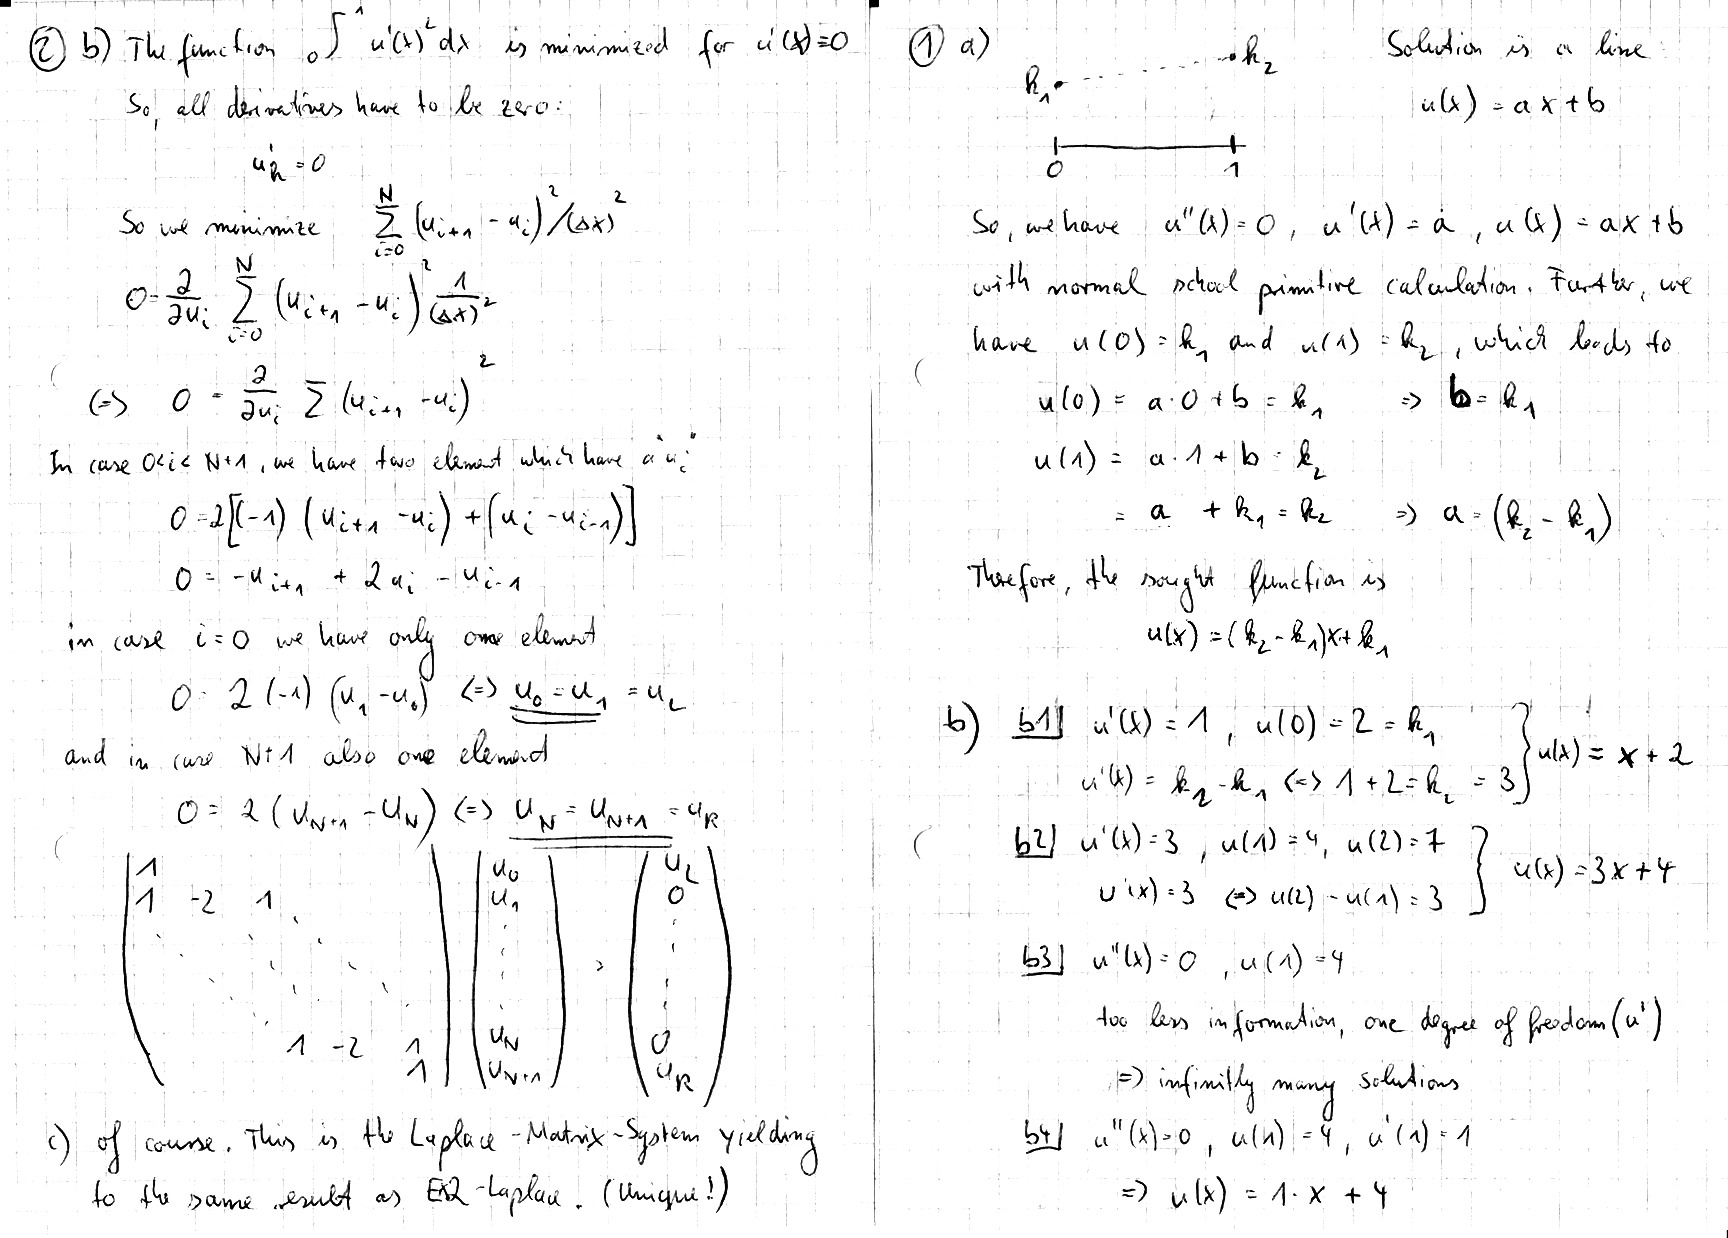 ② b) The function ₀∫¹ u'(x)² dx is minimized for u'(x)=0
So, all derivatives have to be zero:
u'ₖ = 0
So we minimize ∑_{i=0}^{N} (u_{i+1} - u_i)² / (Δx)²
0 = ∂/∂u_i ∑_{i=0}^{N} (u_{i+1} - u_i)² 1/(Δx)²
(=> 0 = ∂/∂u_i ∑ (u_{i+1} - u_i)²
In case 0<i<N+1, we have two element which have a "u_i"
0 = 2[(-1) (u_{i+1} - u_i) + (u_i - u_{i-1})]
0 = -u_{i+1} + 2u_i - u_{i-1}
in case i=0 we have only one element
0 = 2 (-1) (u_1 - u_0) <=> u_0 = u_1 = u_L
and in case N+1 also one element
0 = 2 (u_{N+1} - u_N) <=> u_N = u_{N+1} = u_R
1 u_0 u_L
1 -2 1 u_1 0
1 -2 1 u_N 0
1 u_{N+1} u_R
c) of course. This is the Laplace-Matrix-System yielding
to the same result as EX2-Laplace. (Unique!)
① a) k_1 k_2 Solution is a line
u(x) = ax+b
0 1
So, we have u''(x)=0, u'(x) = a, u(x) = ax+b
with normal school primitive calculation. Further, we
have u(0) = k_1 and u(1) = k_2, which leads to
u(0) = a·0+b = k_1 => b = k_1
u(1) = a·1+b = k_2
= a + k_1 = k_2 => a = (k_2 - k_1)
Therefore, the sought function is
u(x) = (k_2 - k_1)x + k_1
b) b1) u'(x) = 1, u(0) = 2 = k_1
u'(x) = k_2 - k_1 <=> 1+2 = k_2 = 3 } u(x) = x+2
b2) u'(x)=3, u(1)=4, u(2)=7
u'(x)=3 <=> u(2) - u(1) = 3 } u(x) = 3x+4
b3) u''(x)=0, u(1)=4
too less information, one degree of freedom (u')
=> infinitly many solutions
b4) u''(x)=0, u(1)=4, u'(1)=1
=> u(x) = 1·x + 4